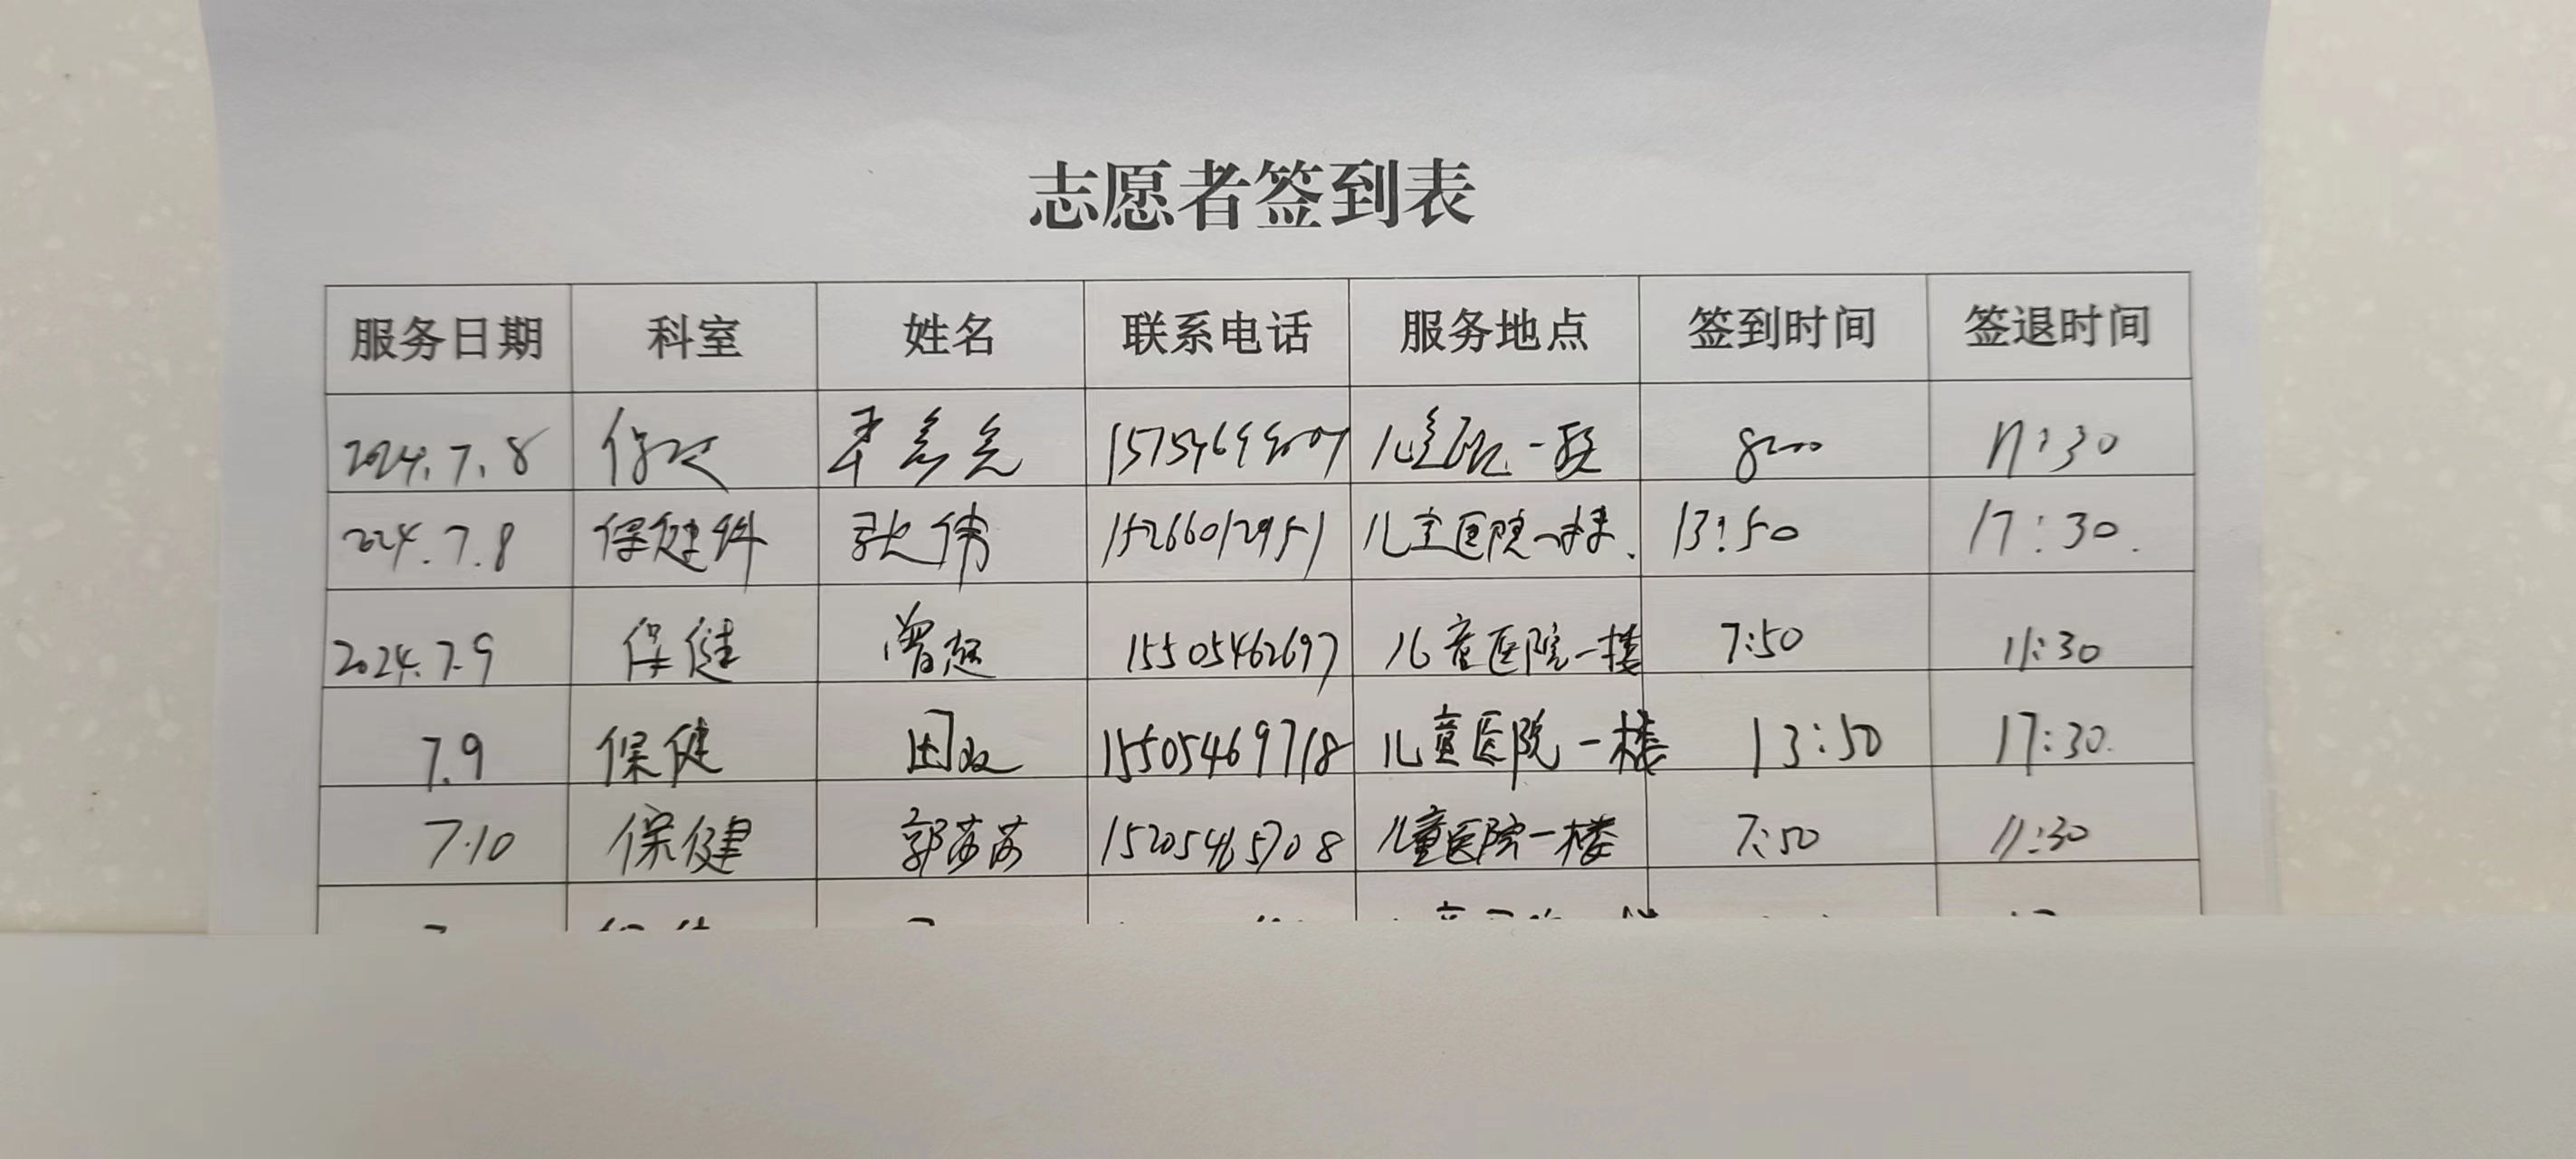 志愿者签到表
服务日期 科室 姓名 联系电话 服务地点 签到时间 签退时间
2024.7.8 保健 儿童医院一楼 8:00 11:30
2024.7.8 保健科 张伟 15266012951 儿童医院一楼. 13:50 17:30.
2024.7.9 保健 曾超 15505462697 儿童医院一楼 7:50 11:30
7.9 保健 田 15505469718 儿童医院一楼 13:50 17:30.
7.10 保健 郭莎莎 15205465708 儿童医院一楼 7:50 11:30